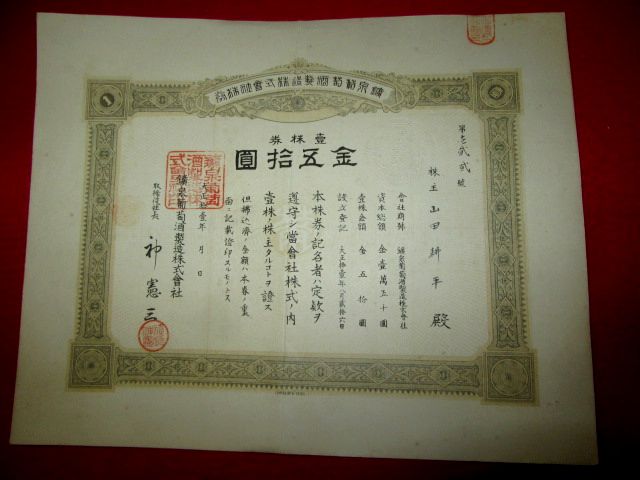 鑛泉葡萄酒製造株式會社株券
壹株券
金五拾圓
第壱弐弐號
株主 山田耕平 殿
會社商號 鑛泉葡萄酒製造株式會社
資本總額 金壹萬五千圓
壹株金額 金五拾圓
設立登記 大正拾壹年八月貳拾六日
本株券ノ記名者ハ定款ヲ
遵守シ當會社株式ノ内
壹株ノ株主タルコトヲ證ス
但拂込濟ノ金額ハ本券ノ裏
面ニ記載證印スルモノトス
大正拾壹年 月 日
鑛泉葡萄酒製造株式會社
取締役社長 神憲三